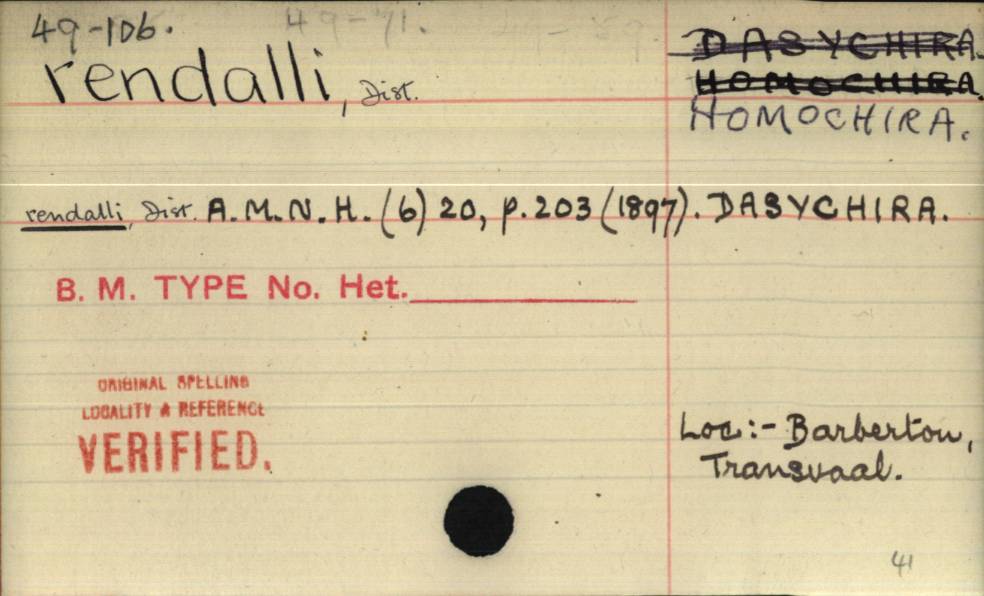 49-106. 49-71.
rendalli, Dist.
DASYCHIRA.
HOMOCHIRA.
HOMOCHIRA.
rendalli, Dist. A.M.N.H. (6) 20, p.203 (1897). DASYCHIRA.
B. M. TYPE No. Het.
ORIGINAL SPELLING
LOCALITY & REFERENCE
VERIFIED.
Loc:- Barberton,
Transvaal.
41